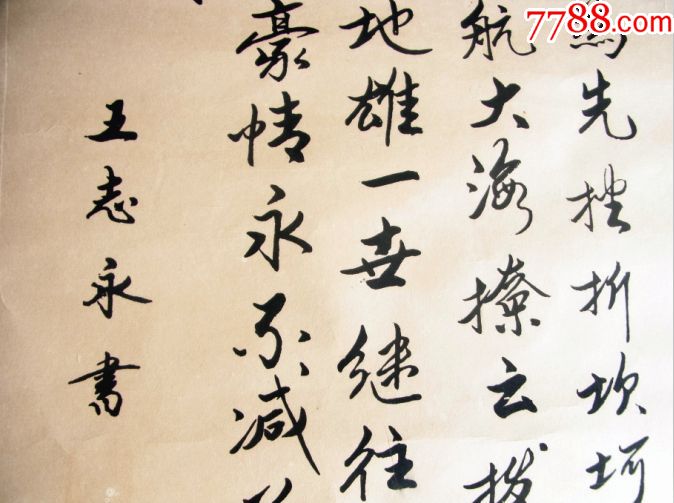 7788.com
先挫折坎坷
航大海撩云拨
地雄一世继往
豪情永不减
王志永书